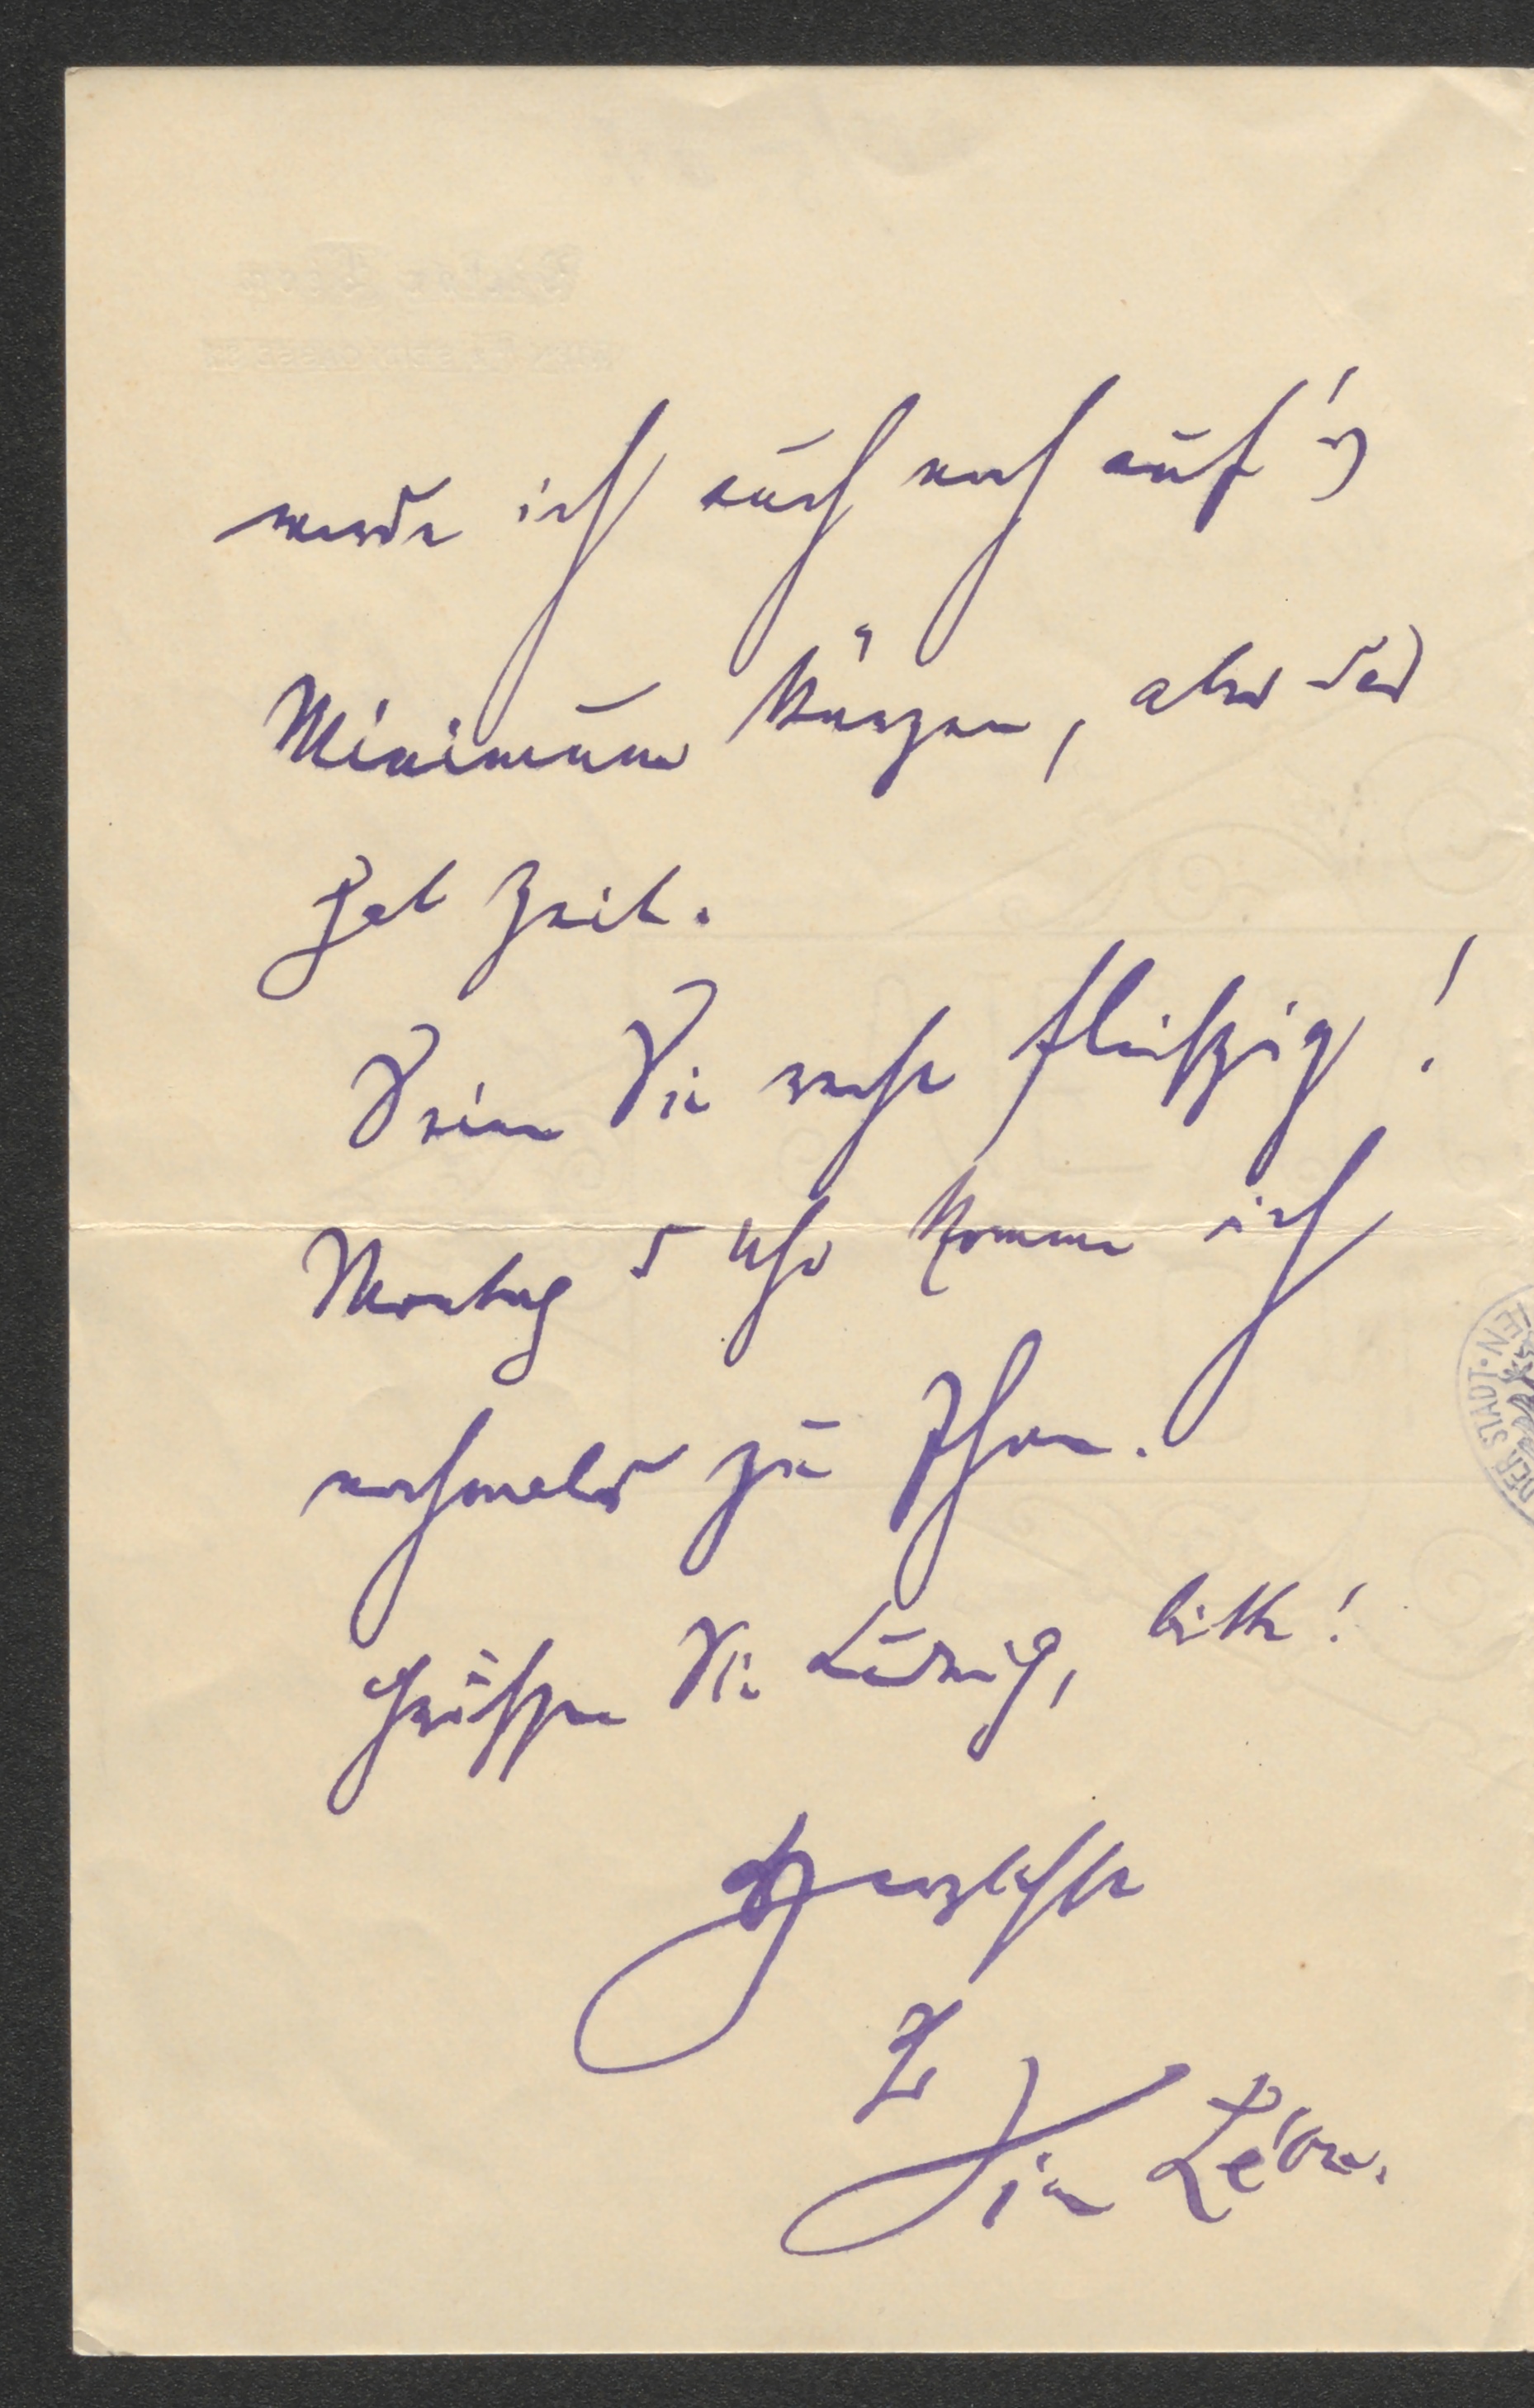 werde ich auch noch auf's
Minimum kürzen, aber das
hat Zeit.
Seien Sie recht fleißig!
Montag 5 Uhr komme ich
nochmals zu Ihnen.
Grüßen Sie Ludwig, bitte!
Herzlichste
Ihr
Léon.
DER STADT